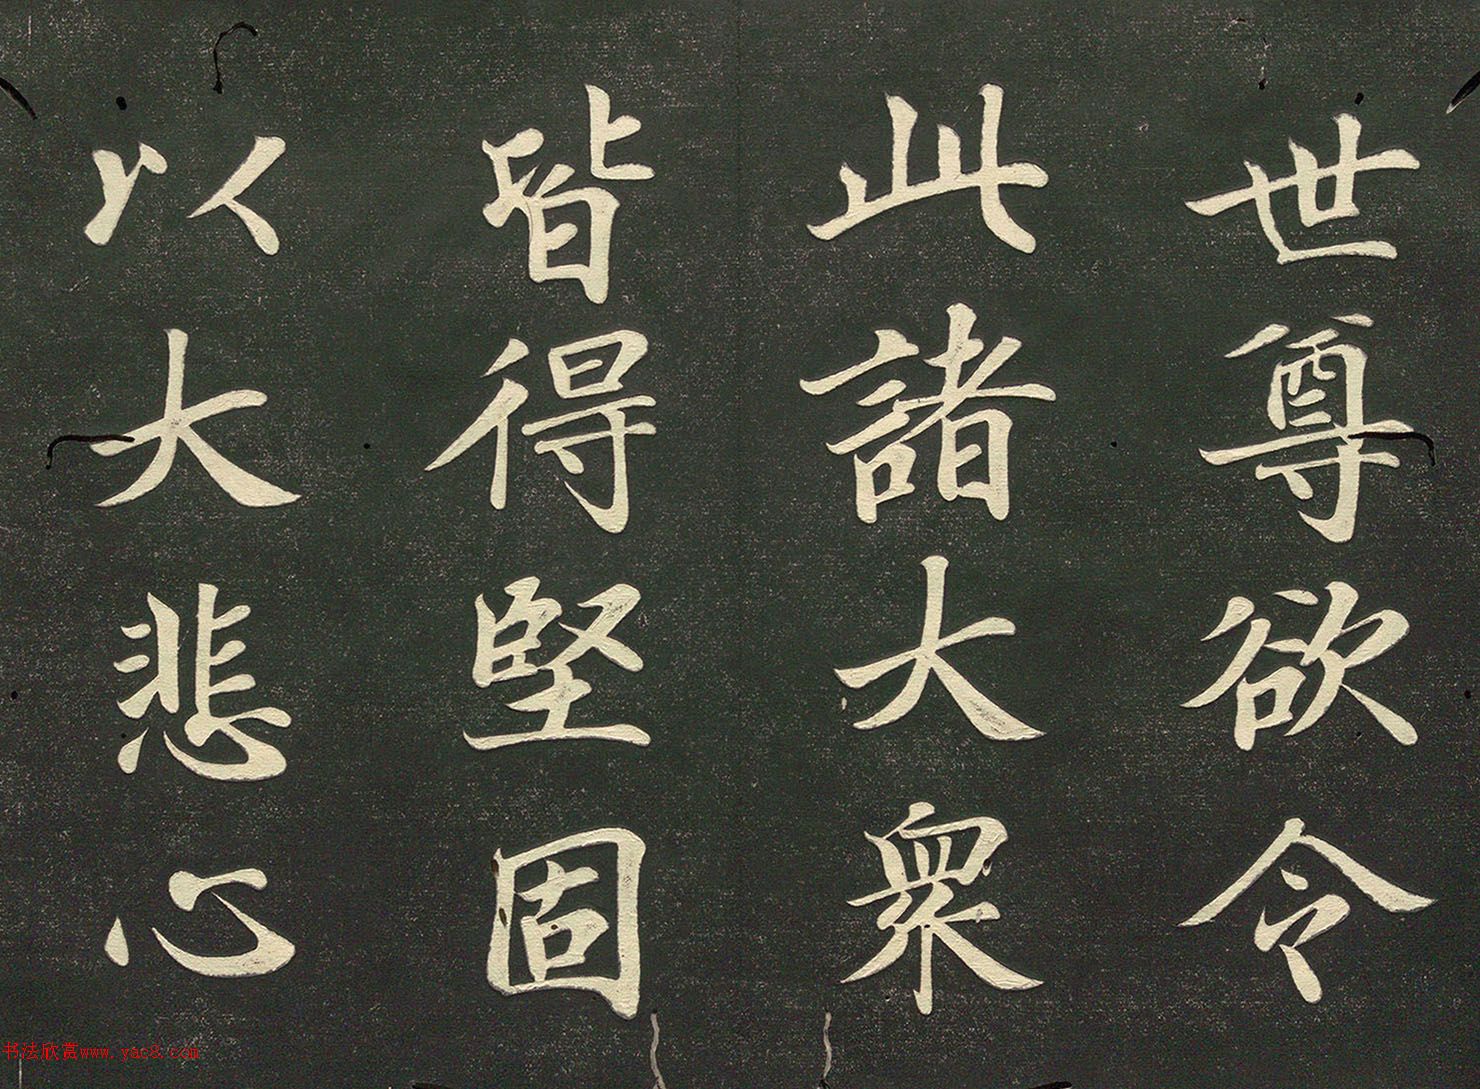 世尊欲令
此諸大衆
皆得堅固
以大悲心
书法欣赏www.yac8.com